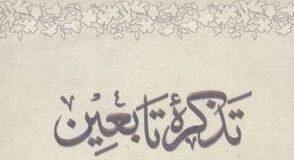 تَذکرۂ تَابعِین